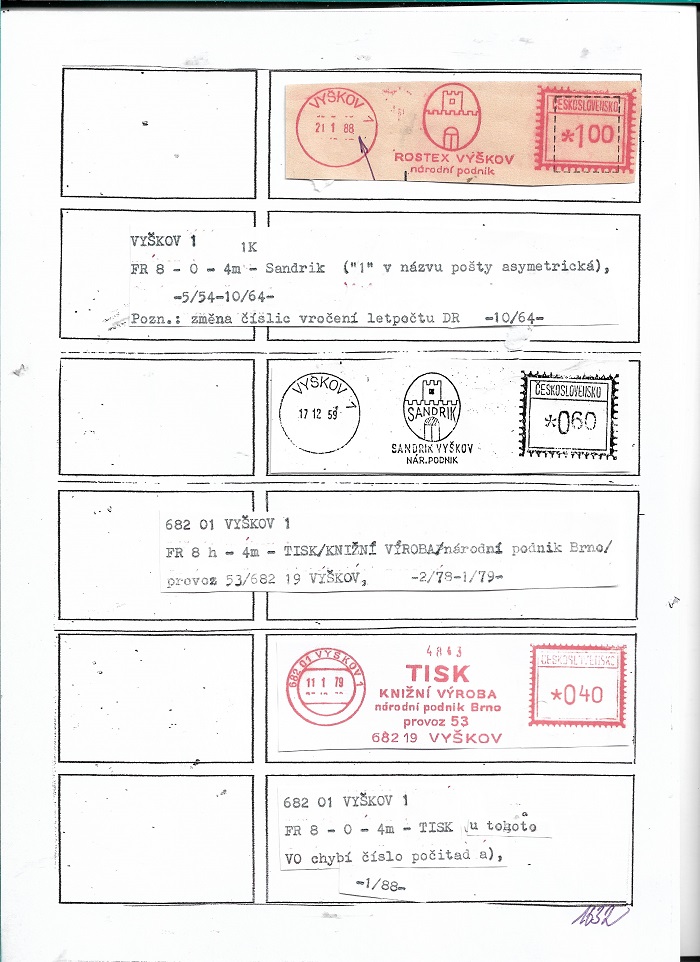 VYŠKOV 1
21 1 88
ROSTEX VYŠKOV
národní podnik
ČESKOSLOVENSKO
*100
VYŠKOV 1
1K
FR 8 - 0 - 4m - Sandrik ("1" v názvu pošty asymetrická),
-5/54-10/64-
Pozn.: změna číslic vročení letpočtu DR -10/64-
VYŠKOV 1
17 12 59
SANDRIK
SANDRIK VYŠKOV
NÁR.PODNIK
ČESKOSLOVENSKO
*060
682 01 VYŠKOV 1
FR 8 h - 4m - TISK/KNIŽNÍ VÝROBA/národní podnik Brno/
provoz 53/682 19 VYŠKOV, -2/78-1/79-
682 01 VYŠKOV 1
11 1 79
4843
TISK
KNIŽNÍ VÝROBA
národní podnik Brno
provoz 53
682 19 VYŠKOV
ČESKOSLOVENSKO
*040
682 01 VYŠKOV 1
FR 8 - 0 - 4m - TISK (u tohoto
VO chybí číslo počitad a),
-1/88-
1632